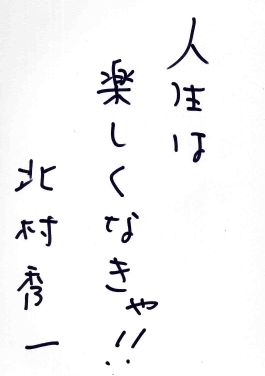 人生は
楽しくなきゃ!!
北村秀一